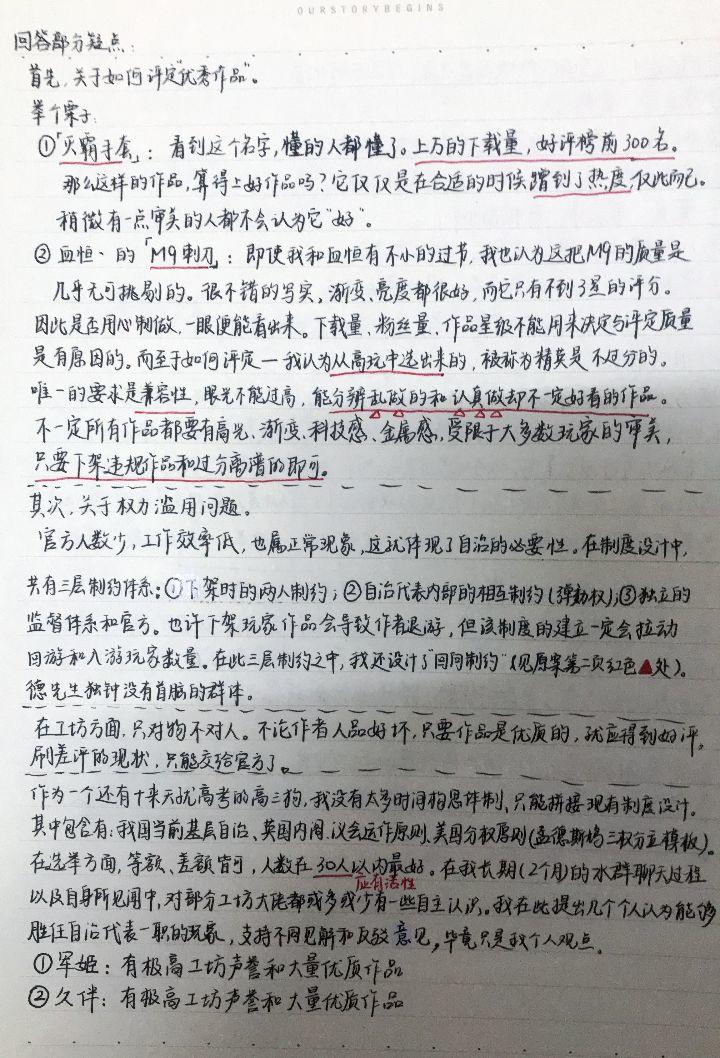 OURSTORYBEGINS
回答部分疑点：
首先，关于如何评定"优秀作品"。
举个栗子：
①「灭霸手套」：看到这个名字，懂的人都懂了。上万的下载量，好评榜前300名。
那么这样的作品，算得上好作品吗？它仅仅是在合适的时候蹭到了热度，仅此而已。
稍微有一点审美的人都不会认为它"好"。
②血恒、的「M9刺刀」：即使我和血恒有不小的过节，我也认为这把M9的质量是
几乎无可挑剔的。很不错的写实，渐变、亮度都很好，而它只有不到3星的评分。
因此是否用心制做，一眼便能看出来。下载量、粉丝量、作品星级不能用来决定与评定质量
是有原因的。而至于如何评定—我认为从高玩中选出来的，被称为精英是不过分的。
唯一的要求是兼容性，眼光不能过高，能分辨乱做的和认真做却不一定好看的作品。
不一定所有作品都要有高光、渐变、科技感、金属感，受限于大多数玩家的审美，
只要下架违规作品和过分离谱的即可。
其次，关于权力滥用问题。
官方人数少，工作效率低，也属正常现象，这就体现了自治的必要性。在制度设计中，
共有三层制约体系：①下架时的两人制约；②自治代表内部的相互制约(弹劾权)；③独立的
监督体系和官方。也许下架玩家作品会导致作者退游，但该制度的建立一定会拉动
回游和入游玩家数量。在此三层制约之中，我还设计了"回网制约"(见原案第二页红色▲处)。
德先生独钟没有首脑的群体。
在工坊方面，只对物不对人。不论作者人品好坏，只要作品是优质的，就应得到好评，
刷差评的现状，只能交给官方了。
作为一个还有十来天就高考的高三狗，我没有太多时间构思体制，只能拼接现有制度设计。
其中包含有：我国当前基层自治、英国内阁、议会运作原则、美国分权原则(孟德斯鸠三权分立模板)。
在选举方面，等额、差额皆可，人数在30人以内最好。在我长期(2个月)的水群聊天过程
应有活性
以及自身所见闻中，对部分工坊大佬都或多或少有一些自主认识。我在此提出几个个人认为能够
胜任自治代表一职的玩家，支持不同见解和反驳意见，毕竟只是我个人观点。
①军姬：有极高工坊声誉和大量优质作品
②久伴：有极高工坊声誉和大量优质作品